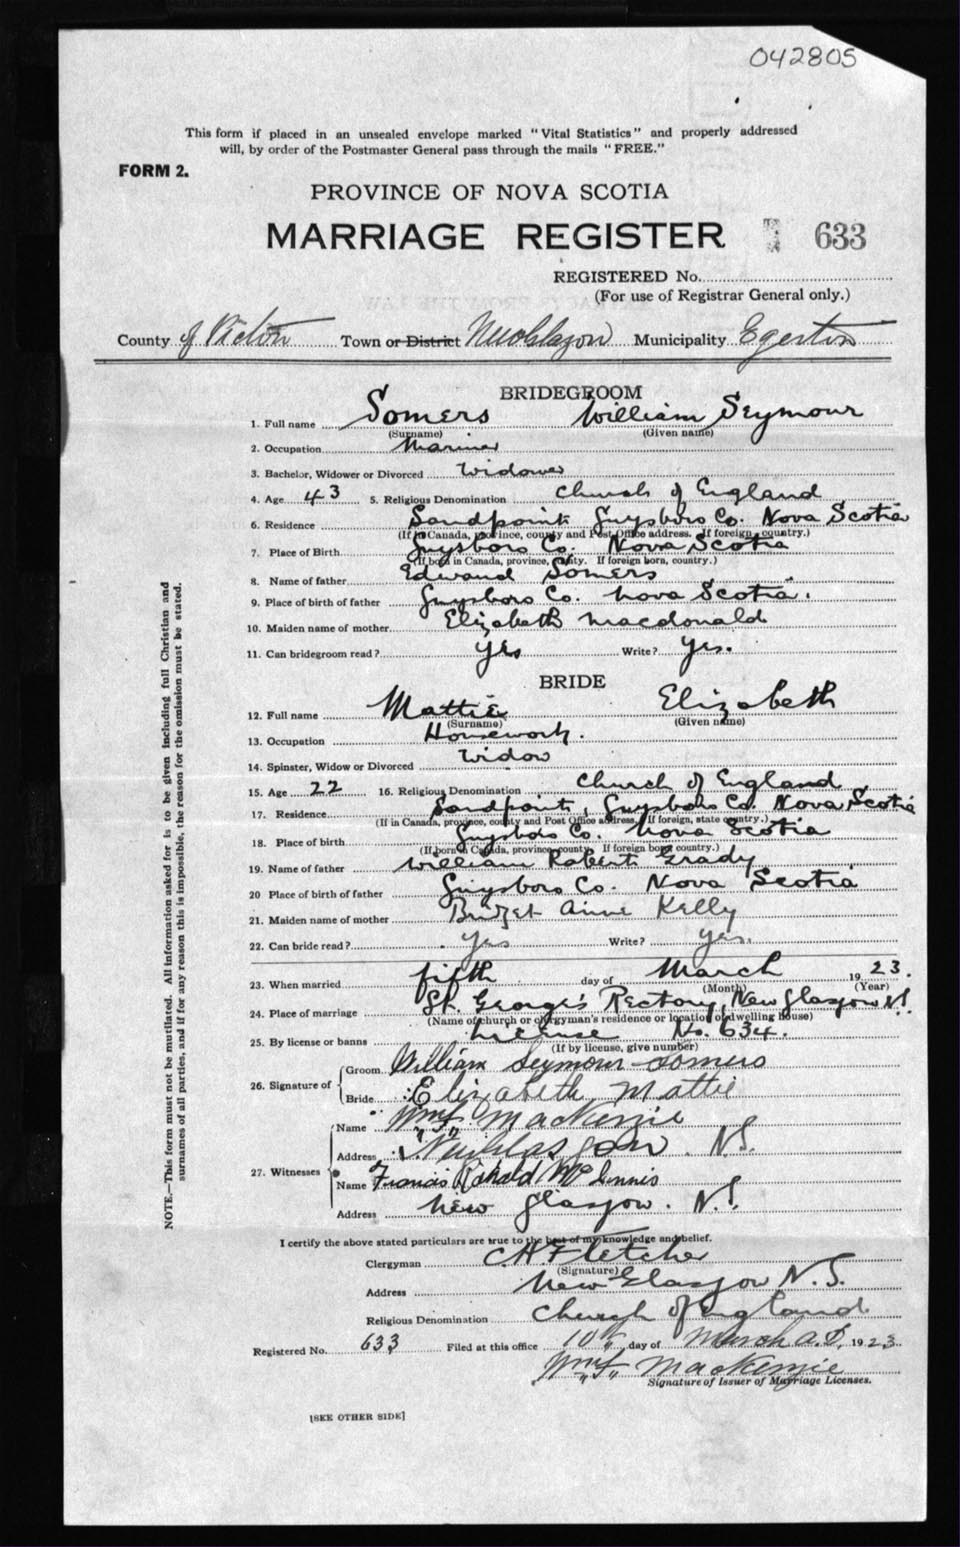 042805
This form if placed in an unsealed envelope marked "Vital Statistics" and properly addressed
will, by order of the Postmaster General pass through the mails "FREE."
FORM 2.
PROVINCE OF NOVA SCOTIA
MARRIAGE REGISTER 633
REGISTERED No.
(For use of Registrar General only.)
County of Pictou Town or District New Glasgow Municipality Egerton
BRIDEGROOM
1. Full name Somers William Seymour
(Surname) (Given name)
2. Occupation Mariner
3. Bachelor, Widower or Divorced Widower
4. Age 43 5. Religious Denomination Church of England
6. Residence Sandpoint Guysboro Co. Nova Scotia
(If in Canada, province, county and Post Office address. If foreign, country.)
7. Place of Birth Guysboro Co. Nova Scotia
(If born in Canada, province, county. If foreign born, country.)
8. Name of father Edward Somers
9. Place of birth of father Guysboro Co. Nova Scotia.
10. Maiden name of mother Elizabeth Macdonald
11. Can bridegroom read? yes Write? yes.
BRIDE
12. Full name Mattie Elizabeth
(Surname) (Given name)
13. Occupation Housework.
14. Spinster, Widow or Divorced Widow
15. Age 22 16. Religious Denomination Church of England
17. Residence Sandpoint, Guysboro Co. Nova Scotia
(If in Canada, province, county and Post Office address. If foreign, state country.)
18. Place of birth Guysboro Co. Nova Scotia
(If born in Canada, province, county. If foreign born, country.)
19. Name of father William Robert Grady
20 Place of birth of father Guysboro Co. Nova Scotia
21. Maiden name of mother Bridget Anne Kelly
22. Can bride read? yes Write? yes.
23. When married fifth day of March 1923.
(Month) (Year)
24. Place of marriage St. George's Rectory, New Glasgow N.S.
(Name of church or clergyman's residence or location of dwelling house)
25. By license or banns License No. 634.
(If by license, give number)
26. Signature of Groom William Seymour Somers
Bride Elizabeth Mattie
27. Witnesses Name Wm F MacKenzie
Address New Glasgow. N.S.
Name Francis Ronald McInnis
Address New Glasgow. N.S.
I certify the above stated particulars are true to the best of my knowledge and belief.
Clergyman C H Fletcher
(Signature)
Address New Glasgow N.S.
Religious Denomination Church of England
Registered No. 633 Filed at this office 10th day of March A.D. 1923.
Wm F MacKenzie
Signature of Issuer of Marriage Licenses.
[SEE OTHER SIDE]
NOTE.—This form must not be mutilated. All information asked for is to be given including full Christian and
surnames of all parties, and if for any reason this is impossible, the reason for the omission must be stated.